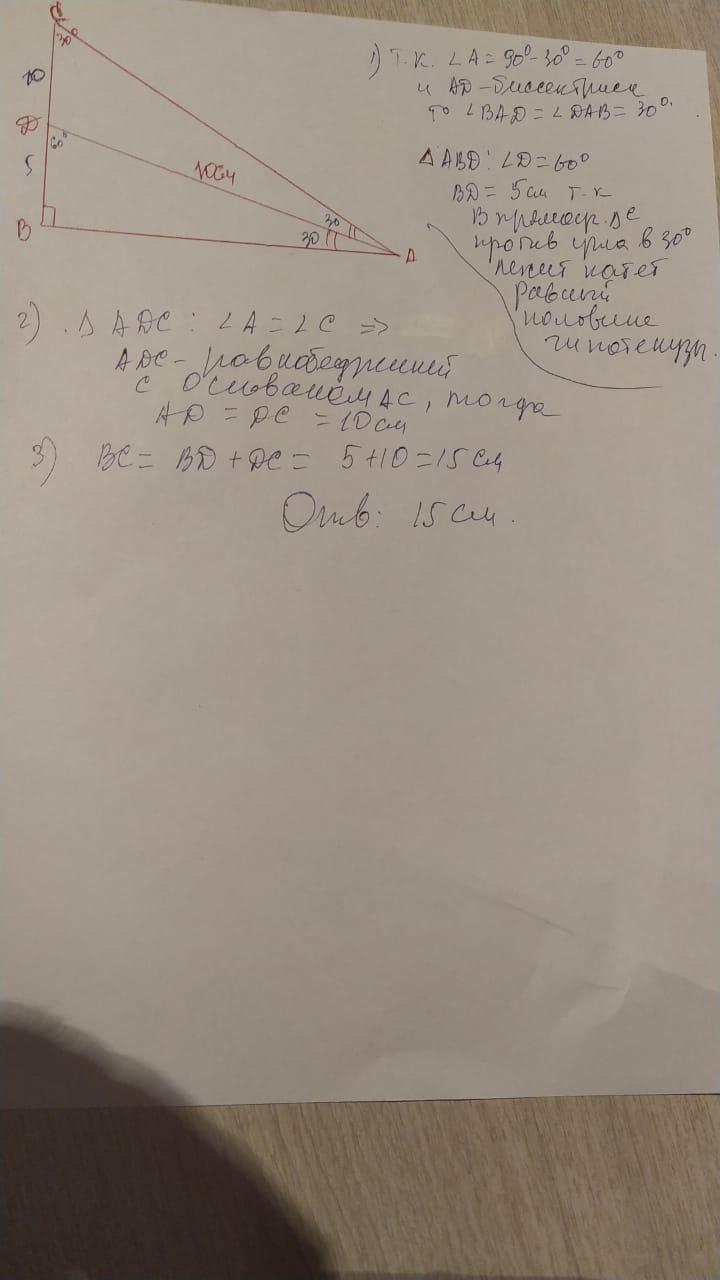 C
30°
10
D
60°
5
10см
B
30
30
A
1) Т.К. ∠A = 90° - 30° = 60°
и AD - биссектриса
то ∠BAD = ∠DAB = 30°.
△ABD: ∠D = 60°
BD = 5 см т.к
В прямоуг. △е
против угла в 30°
лежит катет
равный
половине
гипотенузы.
2) △ ADC: ∠A = ∠C =>
ADC - равнобедренный
с основанием AC, тогда
AD = DC = 10 см
3) BC = BD + DC = 5 + 10 = 15 см
Отв: 15 см.